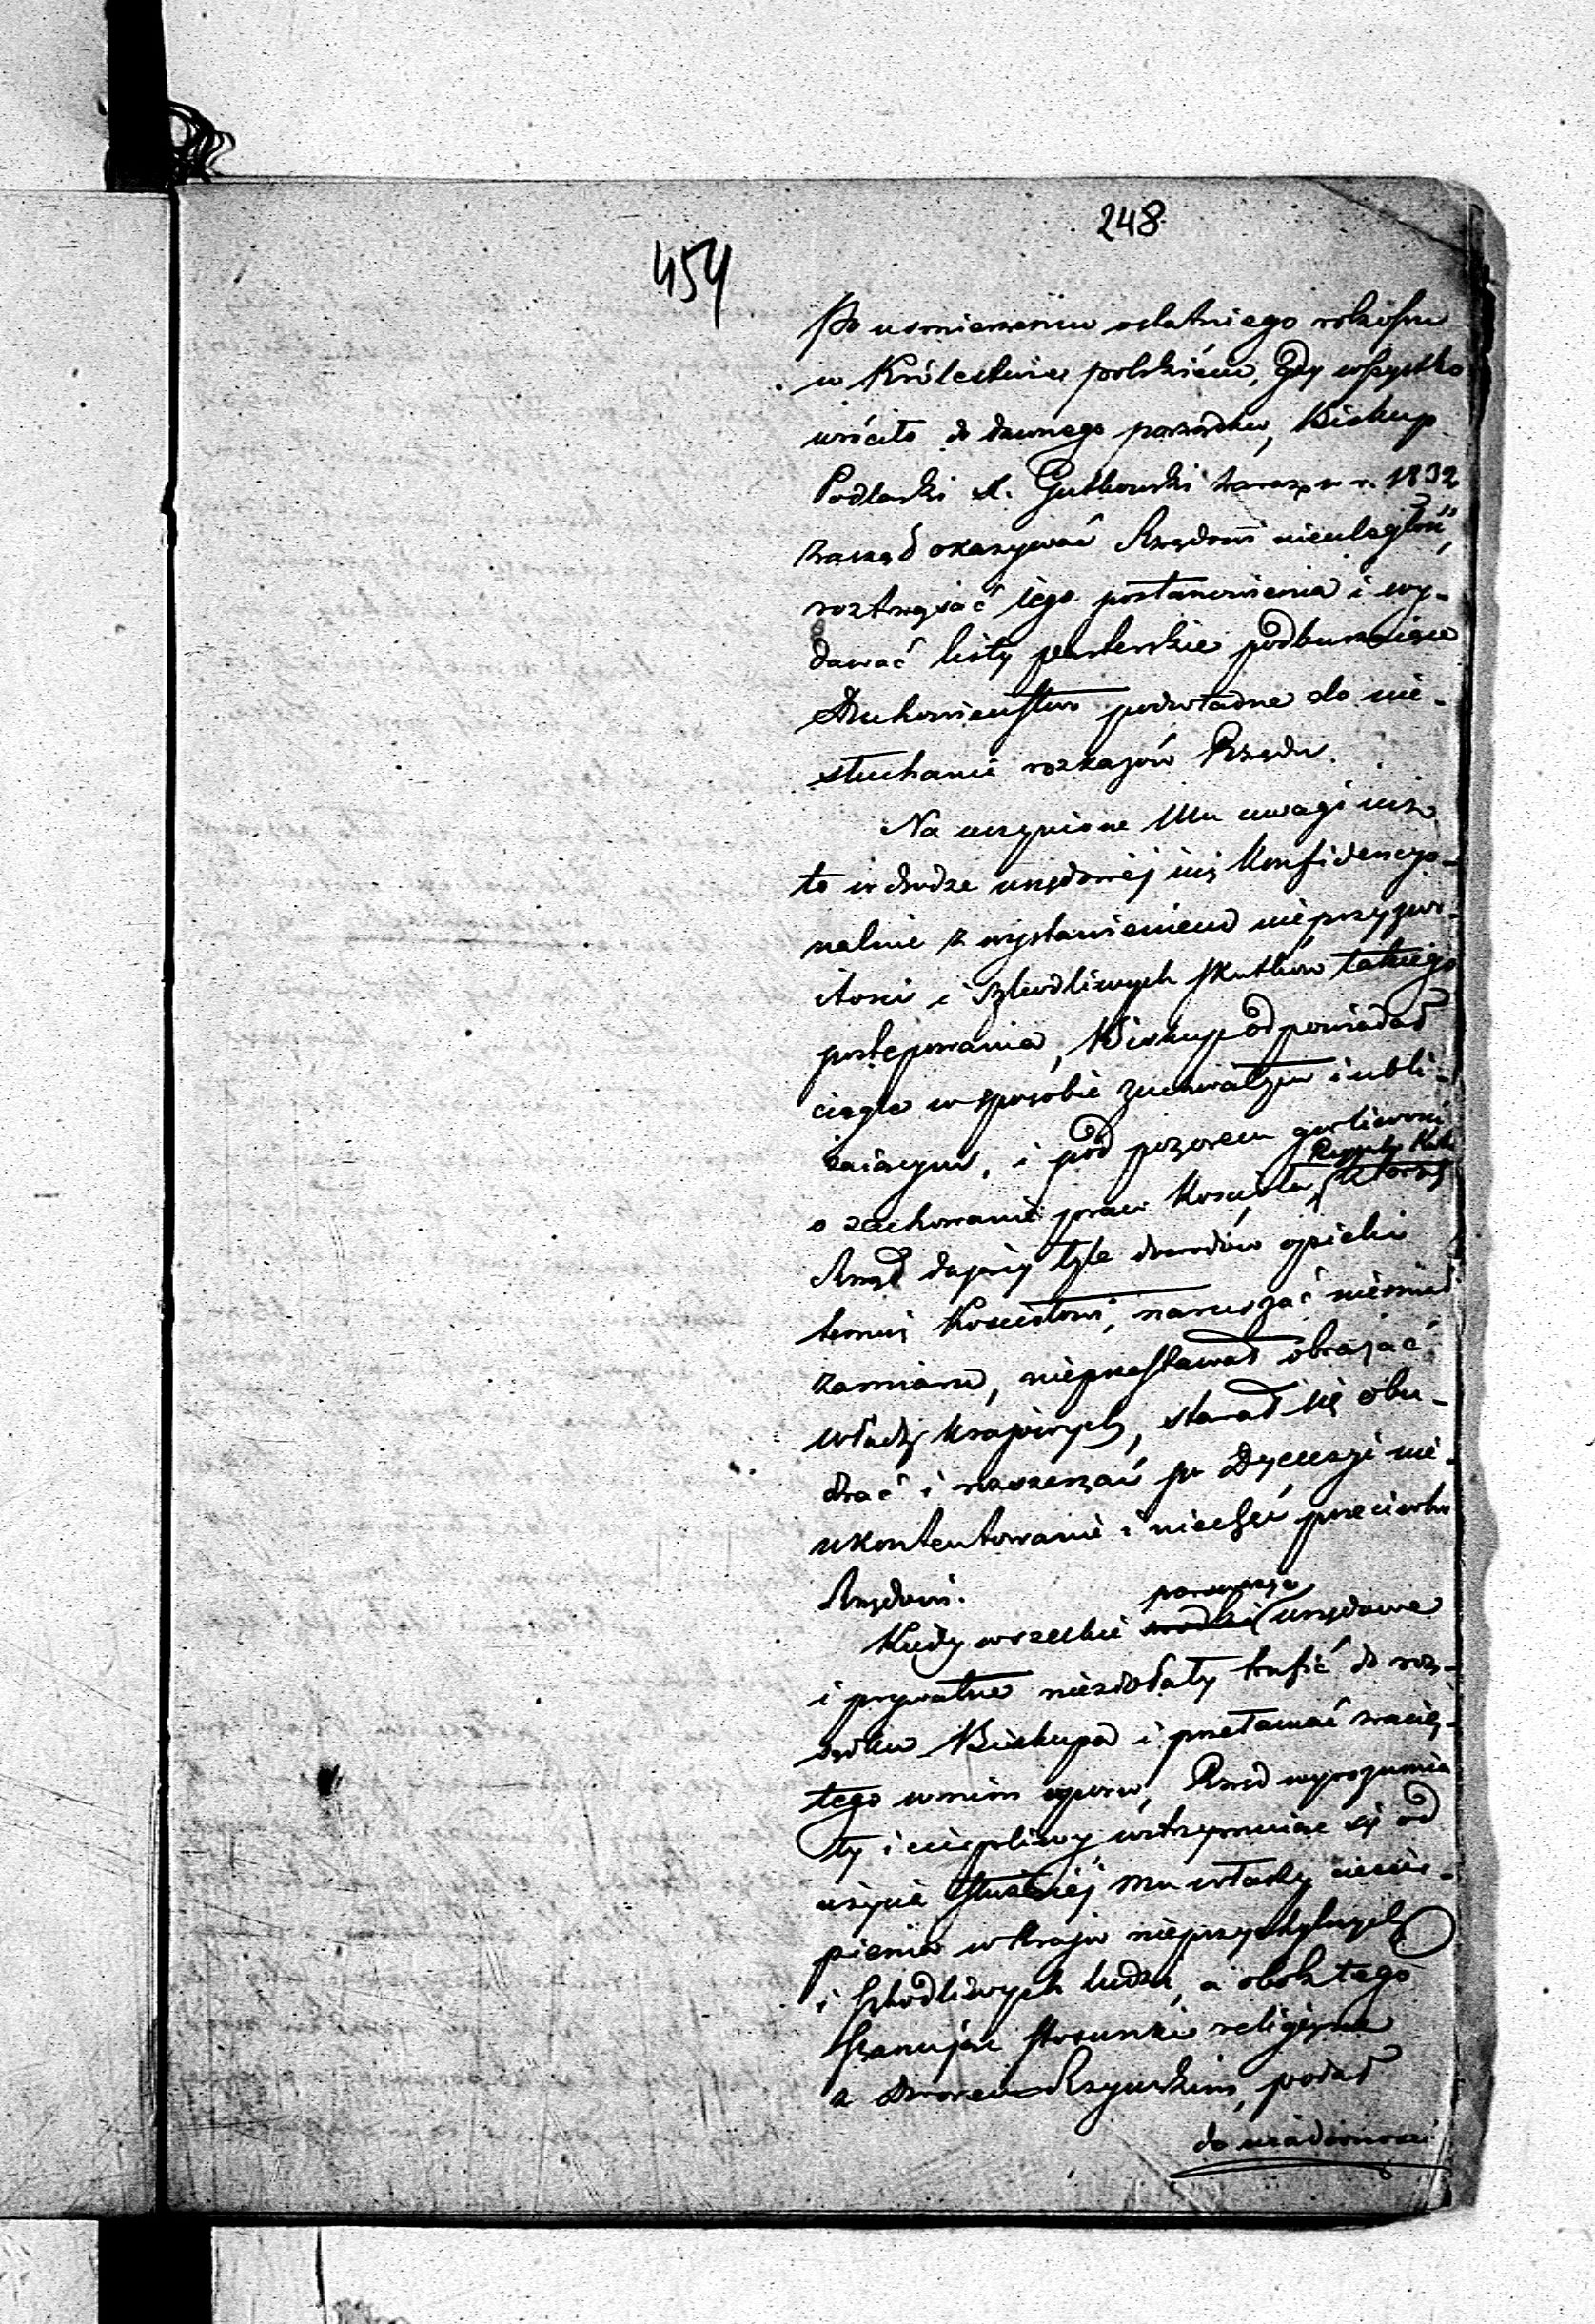 248
454
Po usmierzeniu ostatniego rokoszu
w Królestwie polskiém, Gdy wszystko
wróciło do dawnego porządku, Biskup
Podlaski X. Gutkowski zaraz w r. 1832
zaczął okazywać Rządowi nieuległość,
roztrząsać iego postanowienia i wy-
dawać listy pasterskie podburzaiące
Duchowieństwo podwładne do nie-
słuchania rozkazów Rządu.
Na uczynione Mu uwagi iuż
to w drodze urzędowéj iuż konfidencyo-
nalnie z wystawieniem nieprzyzwo-
itości i szkodliwych skutków takiego
postępowania, Biskup odpowiadał
ciągle w sposobie zuchwałym i ubli-
żaiącym, i pod pozorem gorliwości
o zachowanie praw Kościoła, których
Rząd dający tyle dowodów opieki
temuż Kościołowi, naruszać niemiał
zamiaru, nieprzestawał obrażać
władz krajowych, starał się obu-
dzać i rozszerzać po Dyecezyi nie-
ukontentowanie i niechęć przeciwko
Rządowi.
Kiedy wszelkie środki perswazye urzędowe
i prywatne niezdołały trafić do roz-
sądku Biskupa i przełamać zacię-
tego w nim uporu, Rząd wyrozumia
ły i cierpliwy, wstrzymuiąc się od
użycia służącéj mu władzy niecier-
pienia w kraju nieprzychylnych
i szkodliwych ludzi, a obok tego
szanując stosunki religijne
z Dworem Rzymskim, podał
do wiadomości